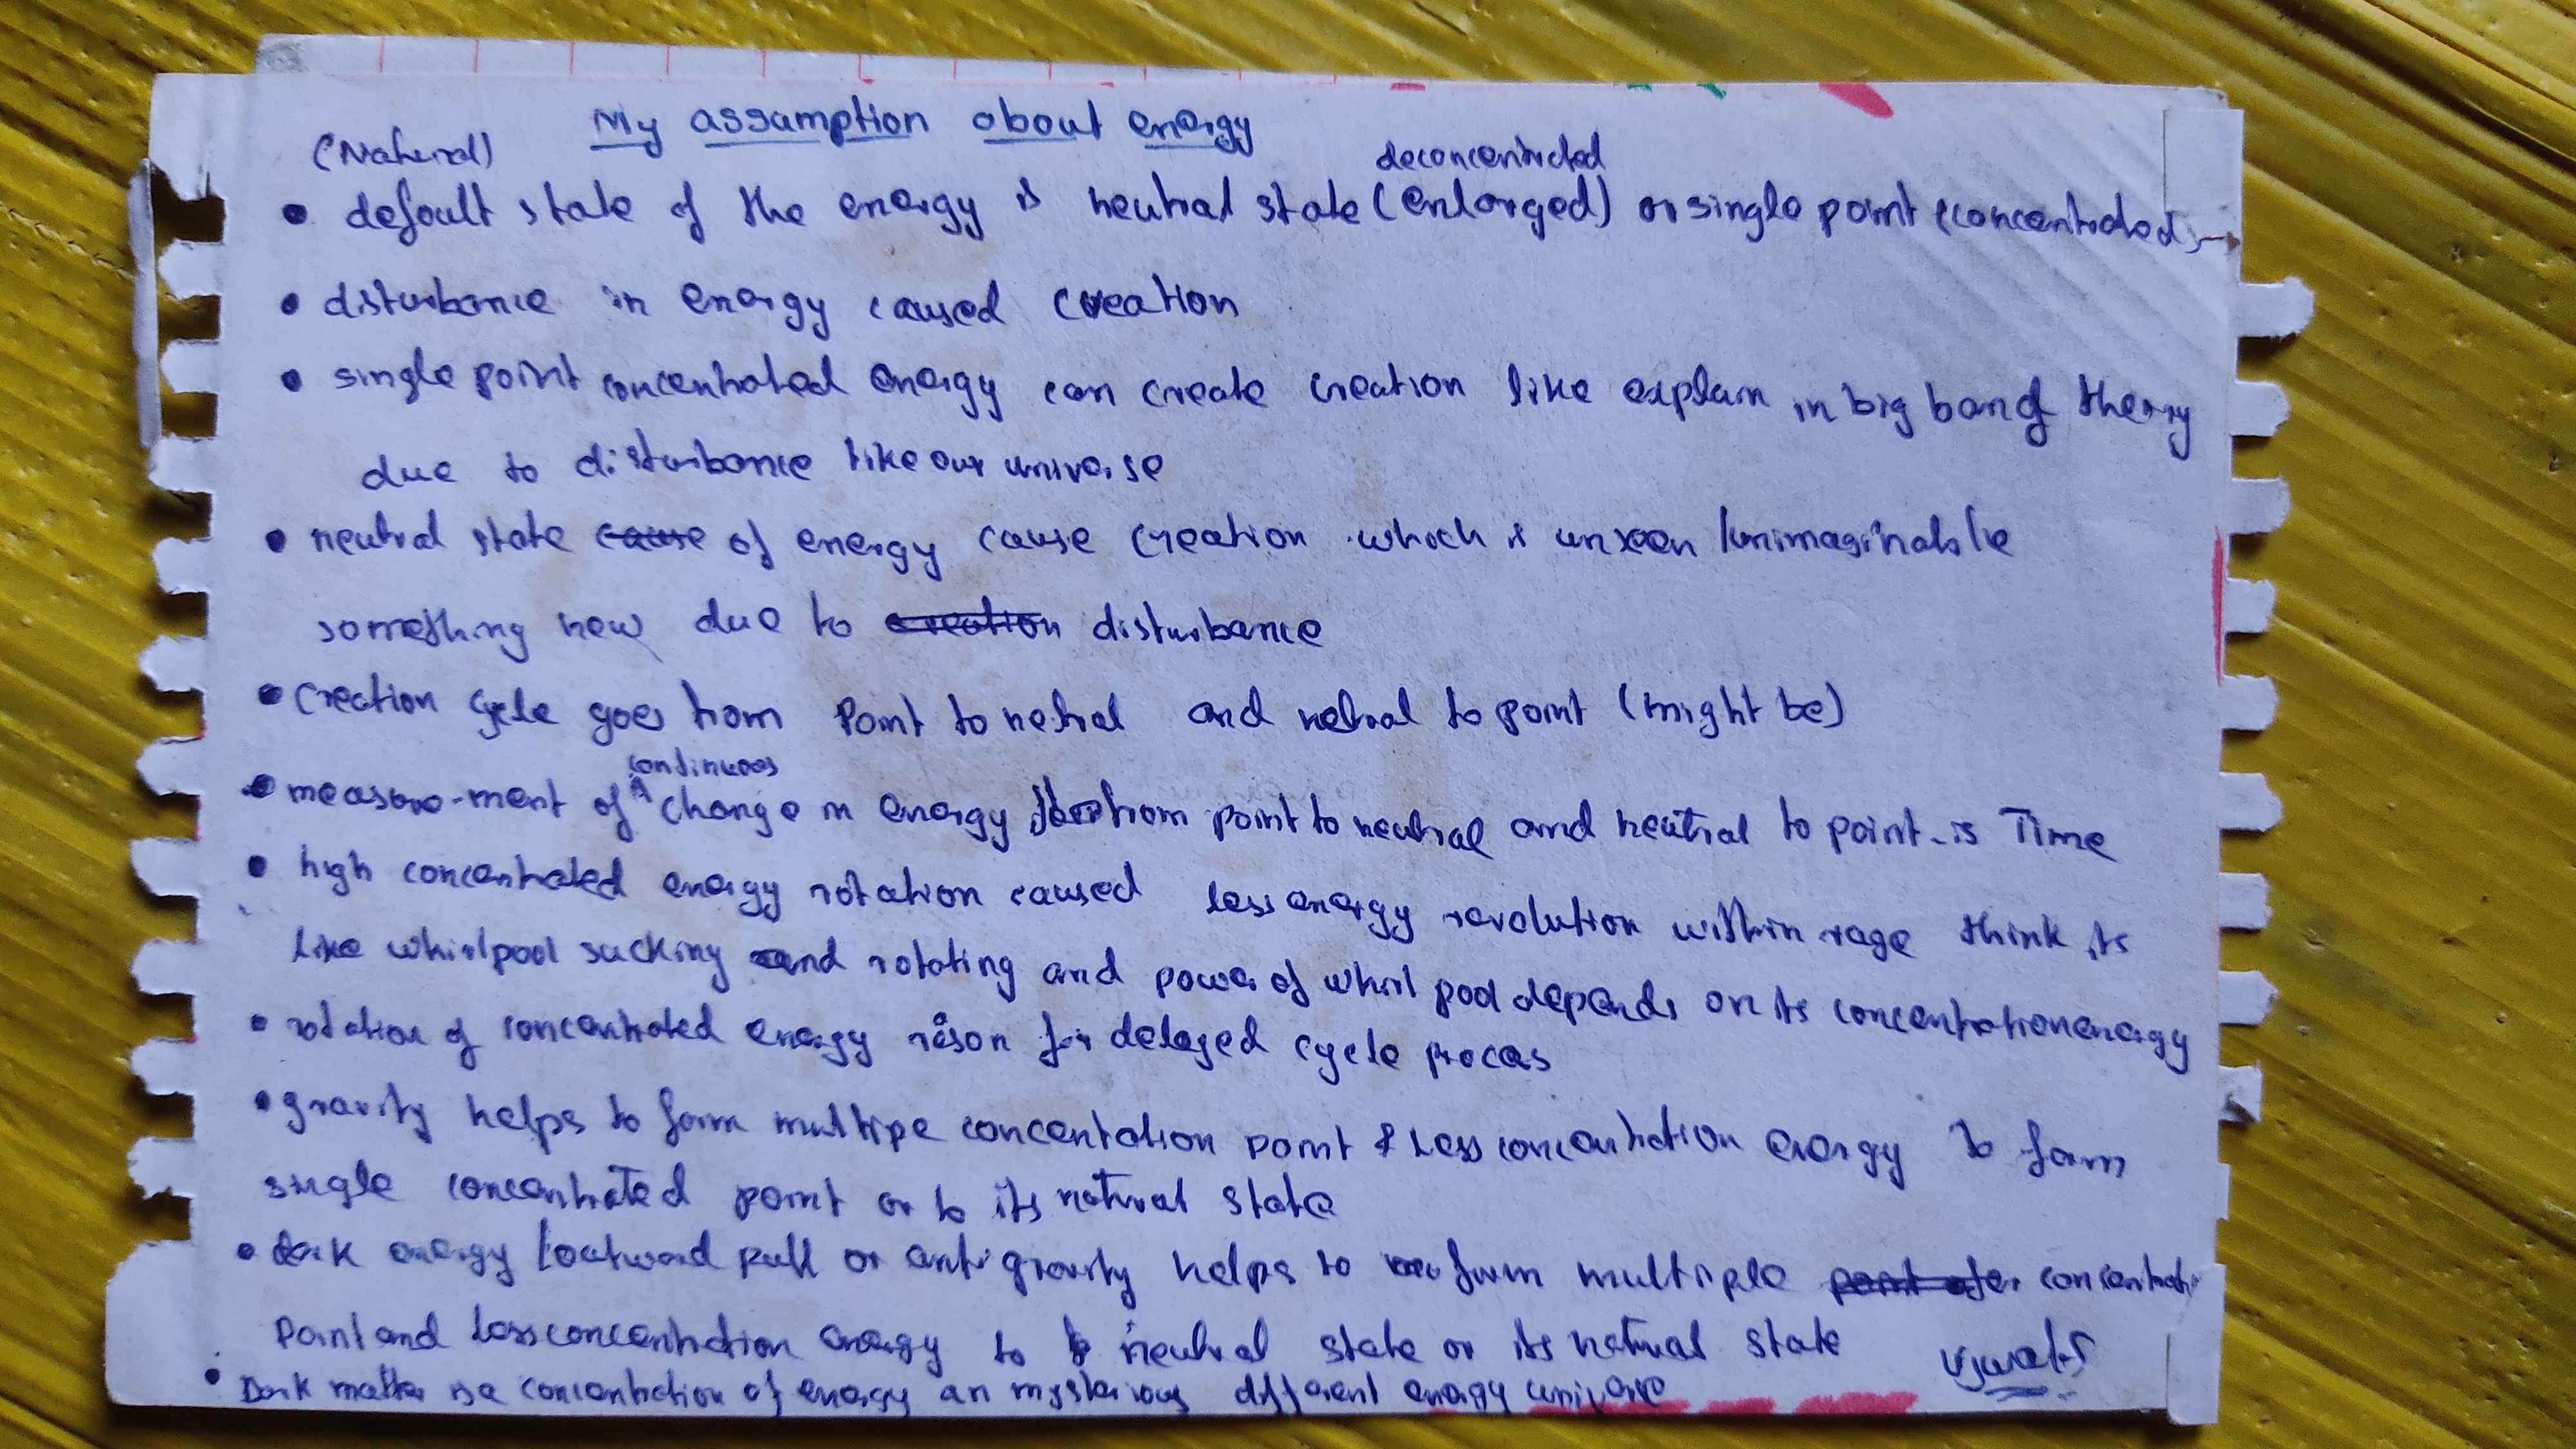 My assumption about energy
(Natural)
deconcentrated
• default state of the energy is neutral state (enlarged) or single point (concentrated)
• disturbance in energy caused creation
• single point concentrated energy can create creation like explain in big bang therry
due to disturbance like our universe
• neutral state cause of energy cause creation which is unseen /unimaginable
something new due to creation disturbance
• creation cycle goes from Point to netral and netral to point (might be)
continuos
• measure-ment of change in energy from point to neutral and neutral to point is Time
• high concentrated energy rotation caused less energy revolution within rage think its
like whirlpool sucking and rotating and power of whirl pool depends on its concentration energy
• rotation of concentrated energy rison for delayed cycle proces
• gravity helps to form multipe concentation point & Less concentration energy to form
single concentrated point or to its natural state
• dark energy /outward pull or anti gravity helps to form multiple concentrati
Point and less concentration energy to neutral state or its natural state
• Dark matter is a concentration of energy an mysterious different energy universe